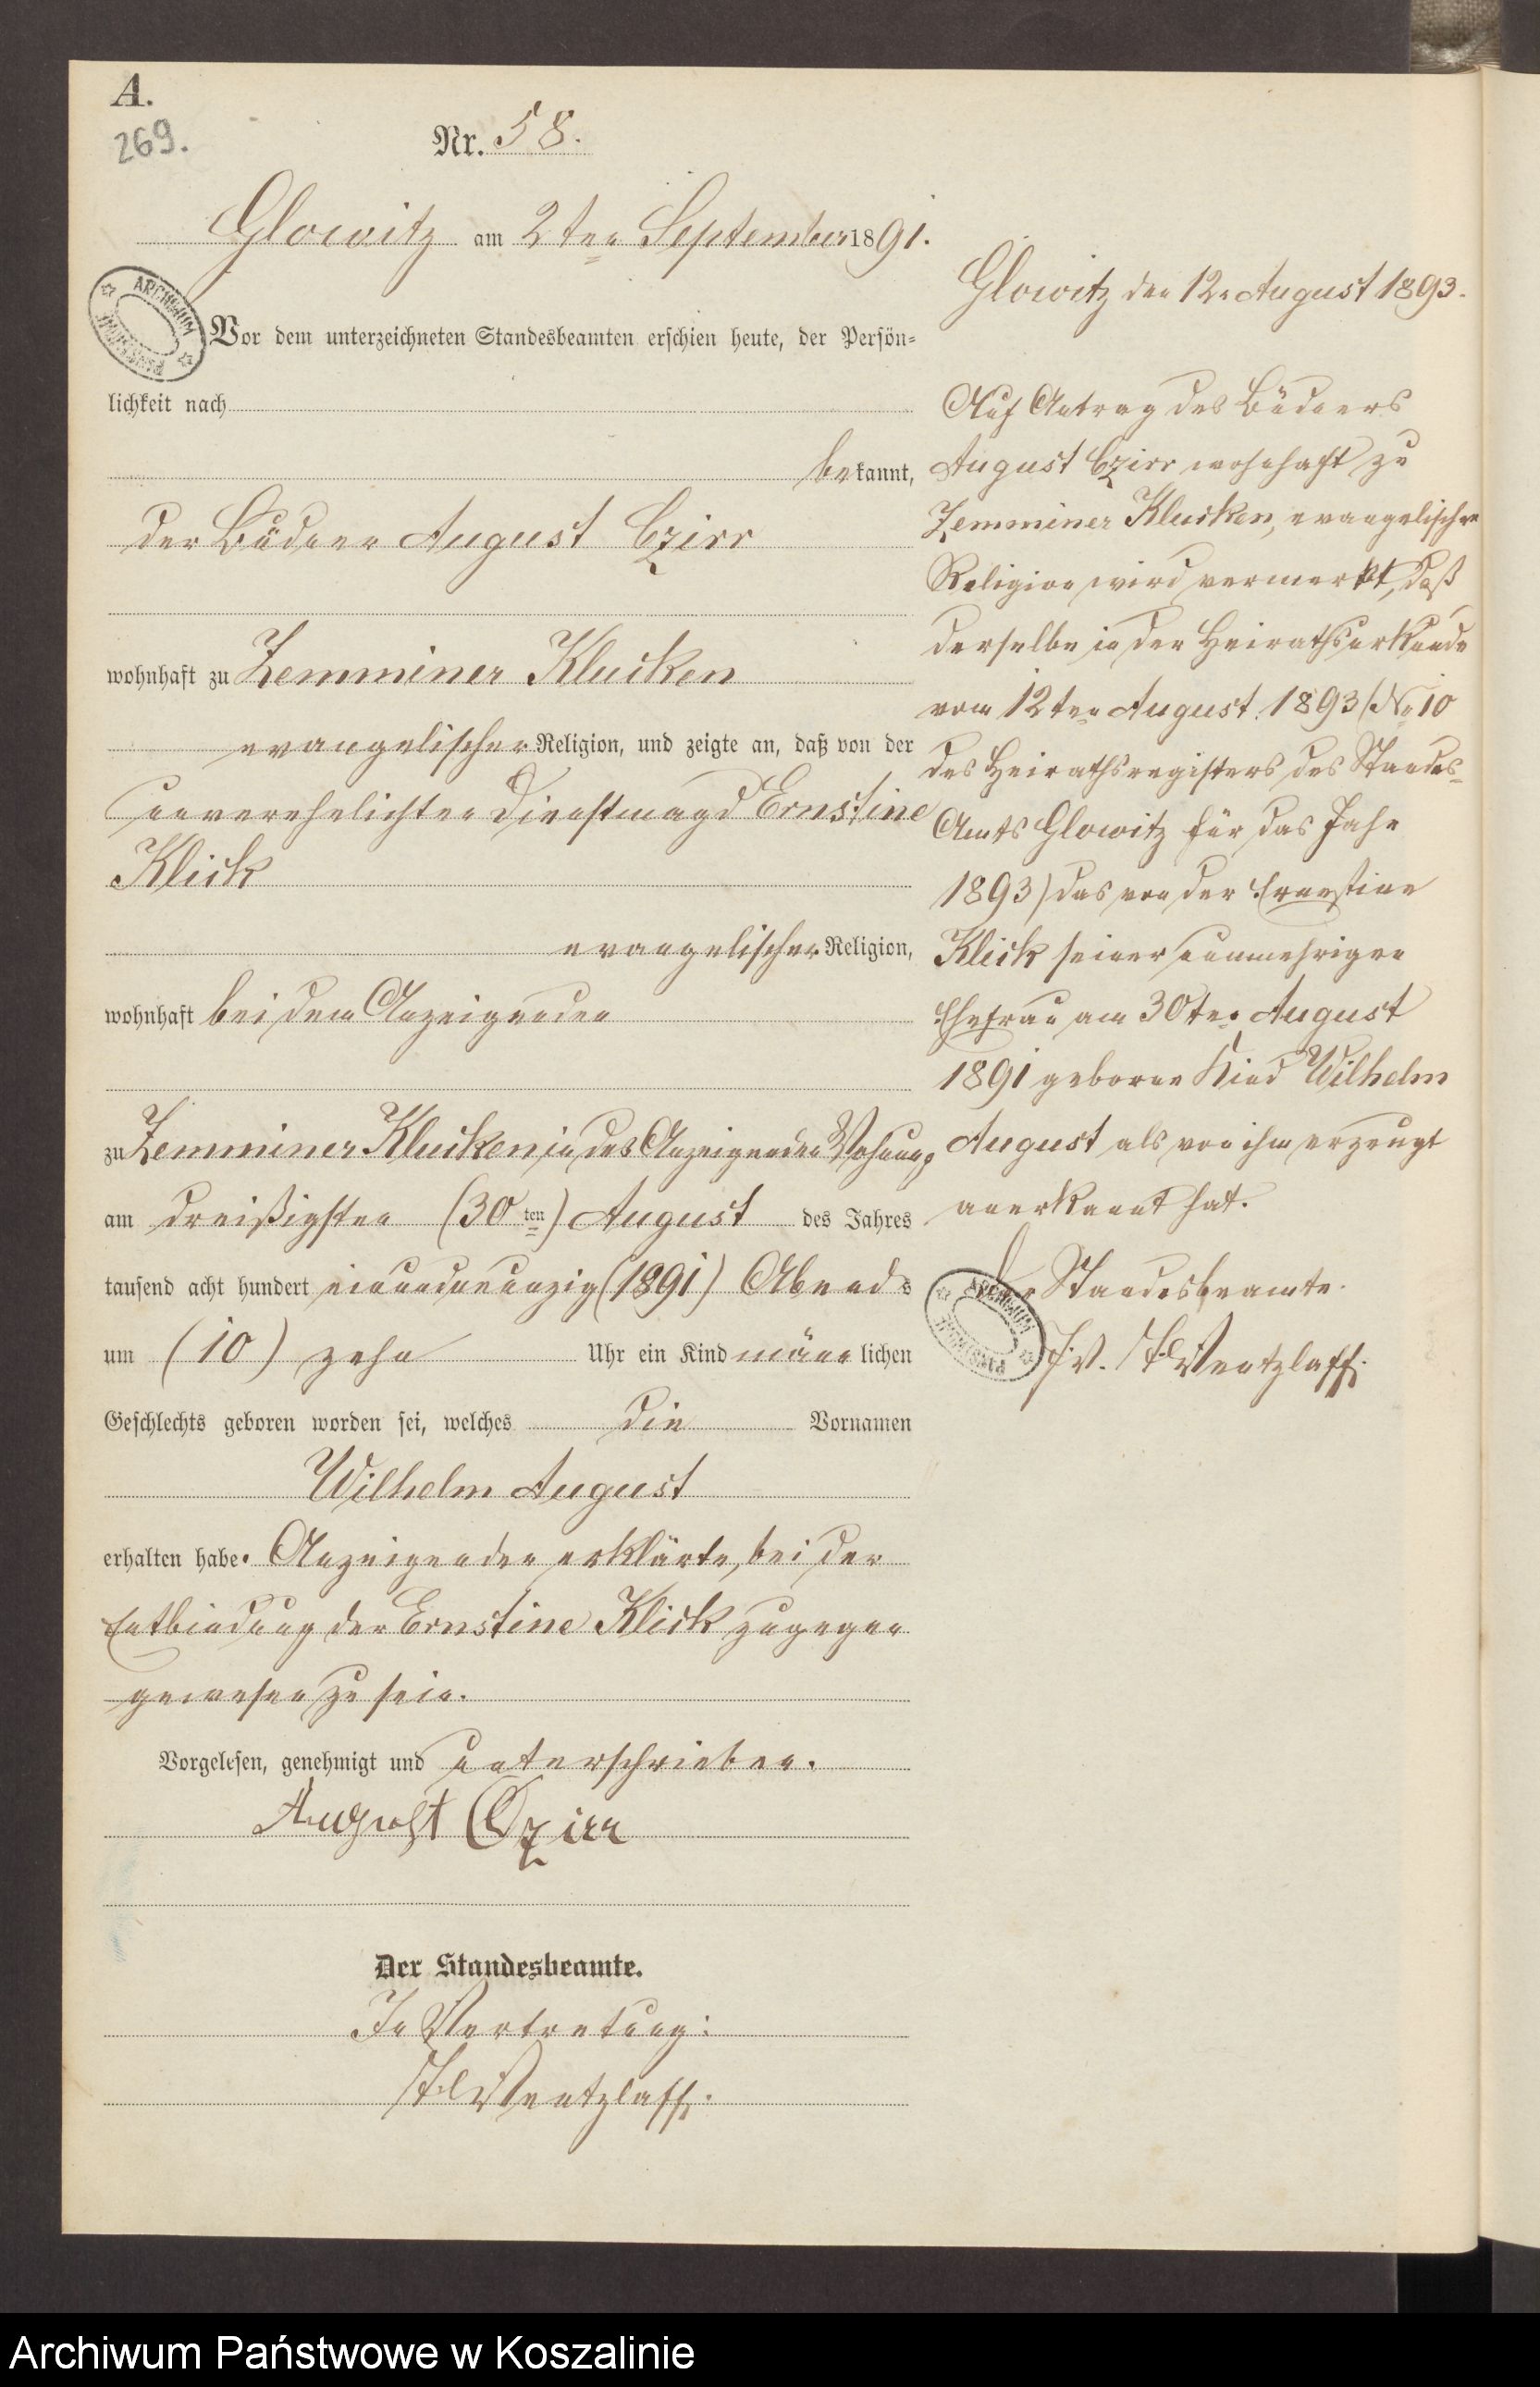 A.
269.
Nr. 58.
Glowitz am 2ten September 1891.
ARCHIWUM PAŃSTWOWE
Vor dem unterzeichneten Standesbeamten erschien heute, der Persön-
lichkeit nach
bekannt,
der Büdner August Czirr
wohnhaft zu Zemminer Klucken
evangelischer Religion, und zeigte an, daß von der
unverehelichten Dienstmagd Ernstine
Klick
evangelischer Religion,
wohnhaft bei dem Anzeigenden
zu Zemminer Klucken in des Anzeigenden Wohnung
am dreißigsten (30ten) August des Jahres
tausend acht hundert einundneunzig (1891) Abends
um (10) zehn Uhr ein Kind männlichen
Geschlechts geboren worden sei, welches die Vornamen
Wilhelm August
erhalten habe. Anzeigender erklärte, bei der
Entbindung der Ernstine Klick zugegen
gewesen zu sein.
Vorgelesen, genehmigt und unterschrieben.
August Czirr
Der Standesbeamte.
In Vertretung:
Wentzlaff.
Glowitz den 12. August 1893.
Auf Antrag des Büdners
August Czirr wohnhaft zu
Zemminer Klucken, evangelischer
Religion wird vermerkt, daß
derselbe in der Heirathsurkunde
vom 12ten August 1893 (No 10
des Heirathsregisters des Standes-
Amts Glowitz für das Jahr
1893) das von der Ernestine
Klick seiner nunmehrigen
Ehefrau am 30ten August
1891 geborne Kind Wilhelm
August als von ihm erzeugt
anerkannt hat.
Der Standesbeamte.
ARCHIWUM PAŃSTWOWE
J.V. Wentzlaff.
Archiwum Państwowe w Koszalinie